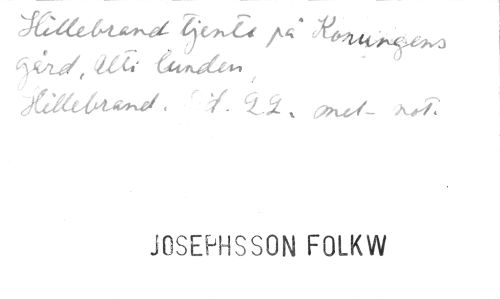 Hillebrand tjente på Konungens
gård, Alti lunden,
Hillebrand. 22. met- not.
JOSEPHSSON FOLKW